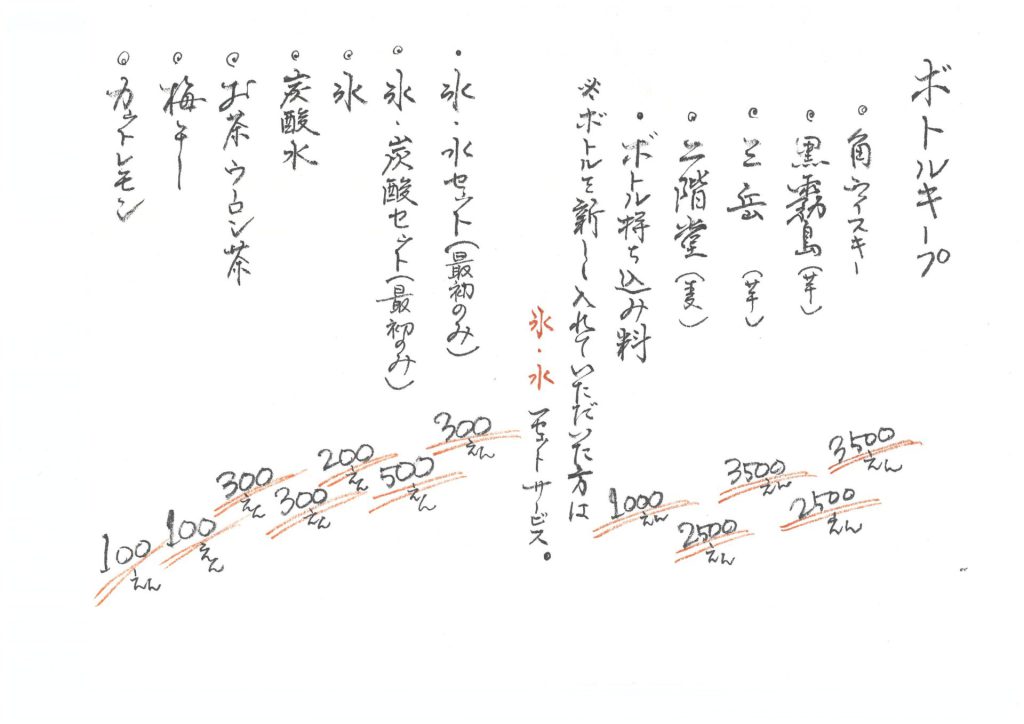 ボトルキープ
◎角ウイスキー 3500えん
◎黒霧島(芋) 2500えん
◎三岳(芋) 3500えん
◎二階堂(麦) 2500えん
・ボトル持ち込み料 1000えん
※ボトルを新しく入れていただいた方は
氷・水 一セットサービス。
・氷・水セット(最初のみ) 300えん
◎氷・炭酸セット(最初のみ) 500えん
◎氷 200えん
◎炭酸水 300えん
◎お茶 ウーロン茶 300えん
◎梅干し 100えん
◎カットレモン 100えん